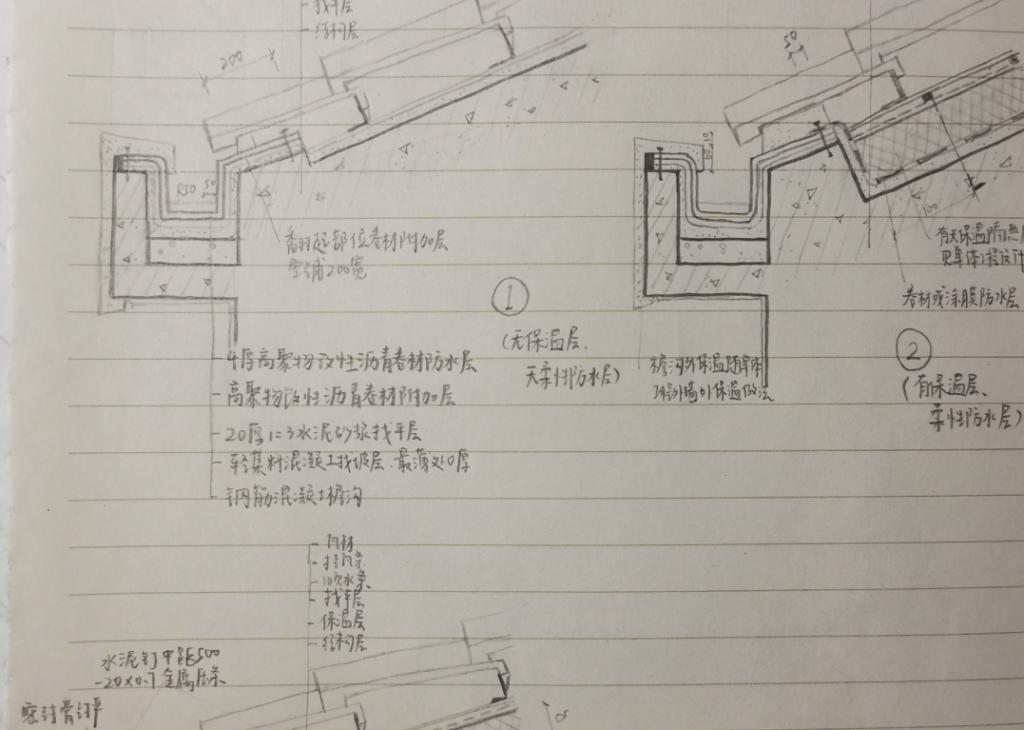 找平层
结构层
200
50
R50
50
翻起部位卷材附加层
空铺200宽
1
(无保温层、
无柔性防水层)
4厚高聚物改性沥青卷材防水层
高聚物改性沥青卷材附加层
20厚1:3水泥砂浆找平层
轻集料混凝土找坡层.最薄处0厚
钢筋混凝土檐沟
檐沟外保温随单体
工程外墙外保温做法
有无保温隔热
见单体工程设计
卷材或涂膜防水层
2
(有保温层、
柔性防水层)
瓦材
挂瓦条
顺水条
找平层
保温层
结构层
水泥钉中距500
-20×0.7金属压条
密封膏封严
α